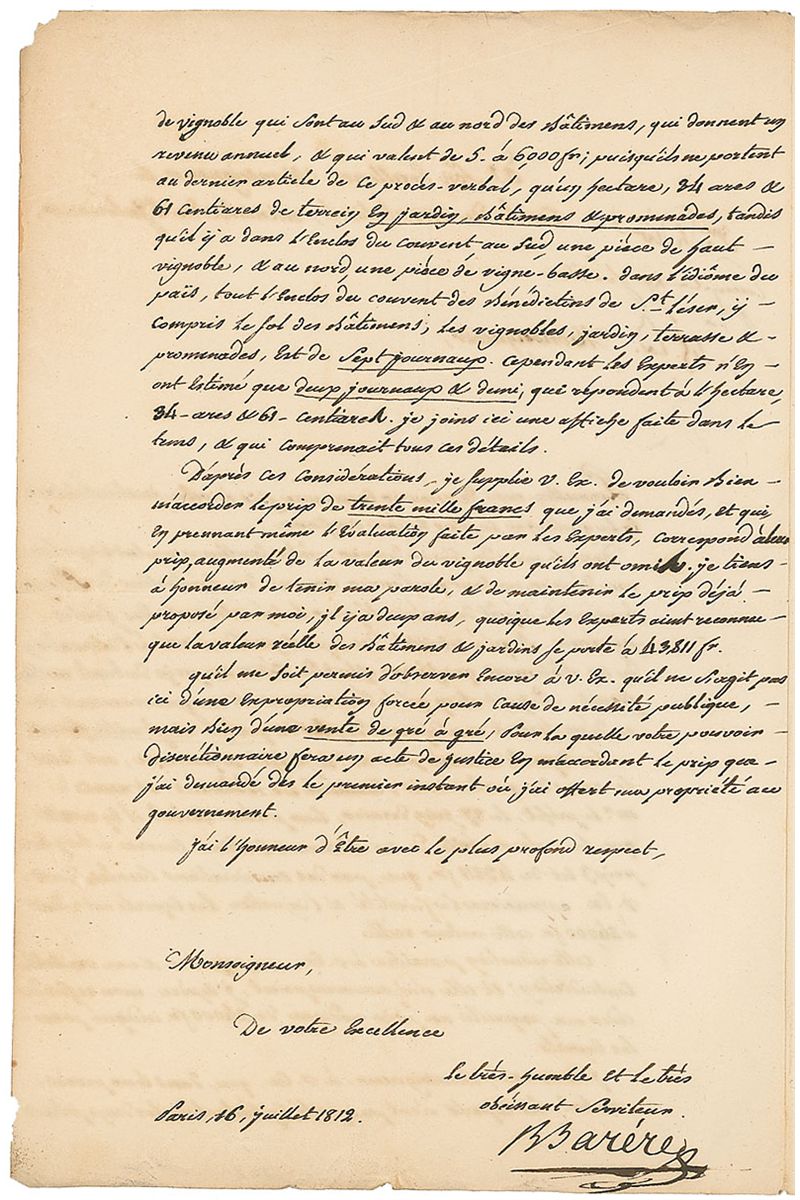 de vignoble qui sont au sud & au nord des bâtimens, qui donnent un
revenu annuel, & qui valent de 5. à 6,000 fr; puisqu'ils ne portent
au dernier article de ce procès-verbal, qu'un hectare, 34 ares &
61 centiares de terrein en jardin, bâtimens & promenades, tandis
qu'il ÿ a dans l'enclos du couvent au sud, une pièce de haut-
vignoble, & au nord, une pièce de vigne-basse. dans l'idiôme du
païs, tout l'enclos du couvent des bénédictins de St. léser, ij-
compris le sol des bâtimens, les vignobles, jardin, terrasse &
promenades, est de sept journaux. cependant les experts n'en
ont estimé que deux journaux & demi, qui répondent à l'hectare,
34-ares & 61-centiares. je joins ici une affiche faite dans le
tems, & qui comprenait tous ces détails.
D'après ces considérations, je supplie V. Ex. de vouloir bien
m'accorder le prix de trente mille francs que j'ai demandés, et qui,
en prennant même l'évaluation faite par les experts, correspond à leur
prix, augmenté de la valeur du vignoble qu'ils ont omis. je tiens
à honneur de tenir ma parole, & de maintenir le prix déjà
proposé par moi, il ij a deux ans, quoique les experts aient reconnu
que la valeur réelle des bâtimens & jardins se porte à 43,811 fr.
qu'il me soit permis d'observer encore à V. Ex. qu'il ne s'agit pas
ici d'une expropriation forcée pour cause de nécessité publique,
mais bien d'une vente de gré à gré, pour la quelle votre pouvoir
discrétionnaire fera un acte de justice en m'accordant le prix que
j'ai demandé dès le premier instant où j'ai offert ma propriété au
gouvernement.
j'ai l'honneur d'être avec le plus profond respect,
Monseigneur,
De votre excellence
le très-humble et le très
obéissant serviteur.
Paris, 16, juillet 1812.
B Barère